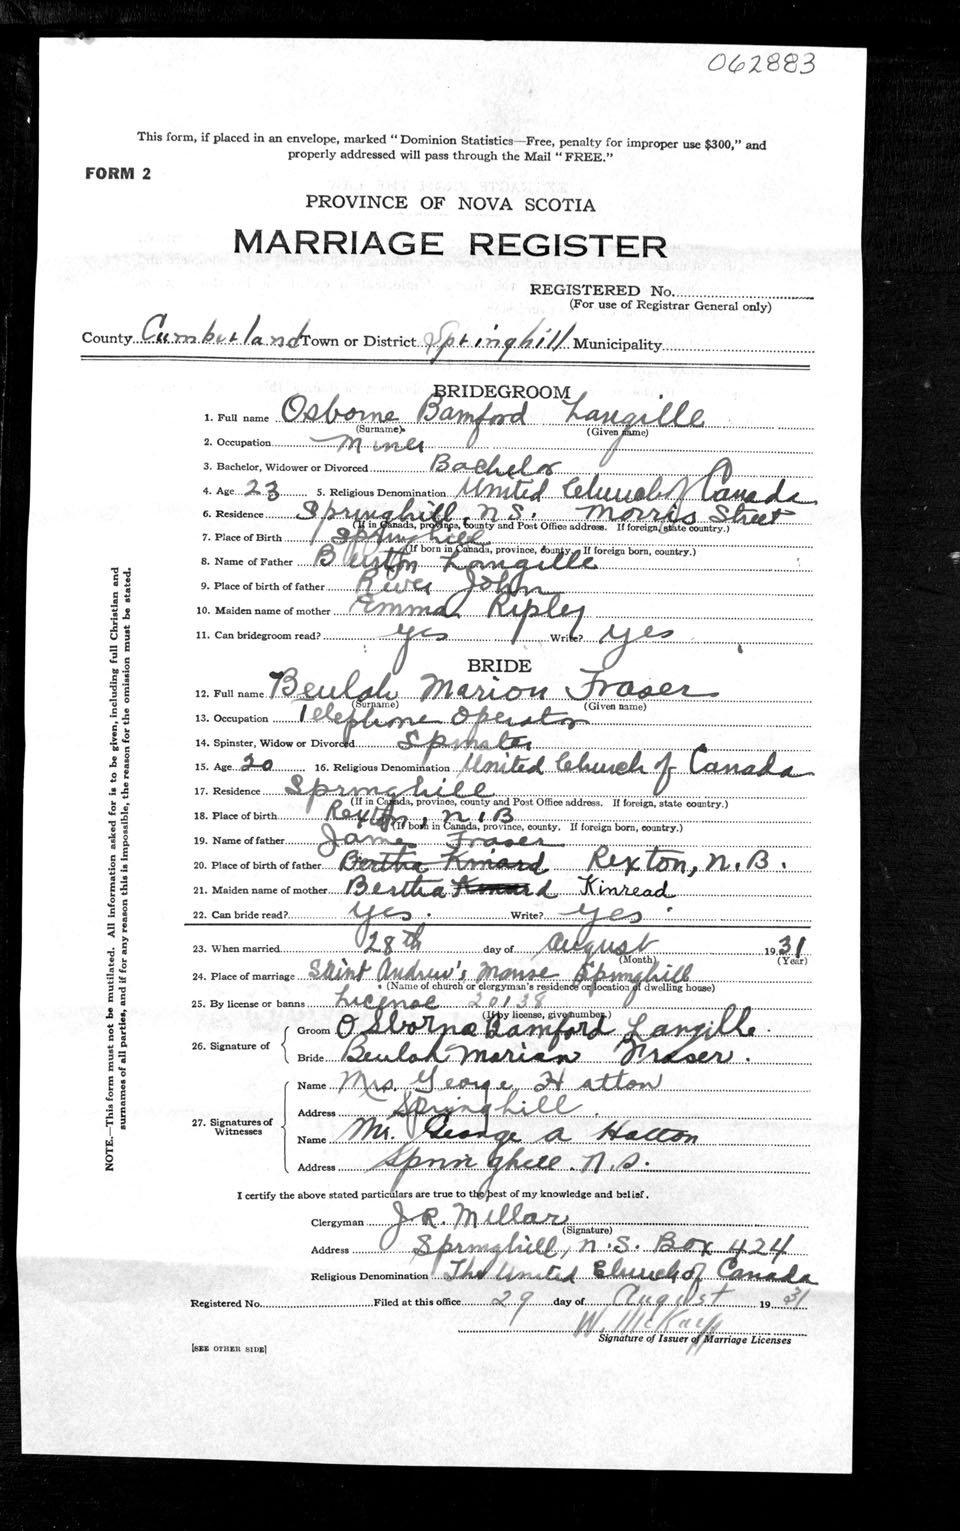 062883
This form, if placed in an envelope, marked "Dominion Statistics—Free, penalty for improper use $300," and
properly addressed will pass through the Mail "FREE."
FORM 2
PROVINCE OF NOVA SCOTIA
MARRIAGE REGISTER
REGISTERED No.
(For use of Registrar General only)
County Cumberland Town or District Springhill Municipality
BRIDEGROOM
1. Full name Osborne Bamford Langille
(Surname) (Given name)
2. Occupation Miner
3. Bachelor, Widower or Divorced Bachelor
4. Age 23 5. Religious Denomination United Church of Canada
6. Residence Springhill, N.S. Morris Street
(If in Canada, province, county and Post Office address. If foreign, state country.)
7. Place of Birth Springhill
(If born in Canada, province, county. If foreign born, country.)
8. Name of Father Langille
9. Place of birth of father River John
10. Maiden name of mother Emma Ripley
11. Can bridegroom read? yes Write? yes
BRIDE
12. Full name Beulah Marion Fraser
(Surname) (Given name)
13. Occupation Telephone Operator
14. Spinster, Widow or Divorced Spinster
15. Age 20 16. Religious Denomination United Church of Canada
17. Residence Springhill
(If in Canada, province, county and Post Office address. If foreign, state country.)
18. Place of birth Rexton, N.B
(If born in Canada, province, county. If foreign born, country.)
19. Name of father James Fraser
20. Place of birth of father Bertha Kinard Rexton, N.B.
21. Maiden name of mother Bertha Kinread
22. Can bride read? yes. Write? yes
23. When married 28th day of August 1931
(Month) (Year)
24. Place of marriage Saint Andrew's Manse Springhill
(Name of church or clergyman's residence or location of dwelling house)
25. By license or banns License 20138
(If by license, give number.)
26. Signature of
Groom Osborne Bamford Langille.
Bride Beulah Marian Fraser.
27. Signatures of Witnesses
Name Mrs. George Hatton
Address Springhill.
Name Mr. George A Hatton
Address Springhill. N.S.
I certify the above stated particulars are true to the best of my knowledge and belief.
Clergyman J.R. Millar
(Signature)
Address Springhill, N.S. Box 424
Religious Denomination The United Church of Canada
Registered No. Filed at this office 29 day of August 1931
W. McKay
Signature of Issuer of Marriage Licenses
[SEE OTHER SIDE]
NOTE.—This form must not be mutilated. All information asked for is to be given, including full Christian and
surnames of all parties, and if for any reason this is impossible, the reason for the omission must be stated.